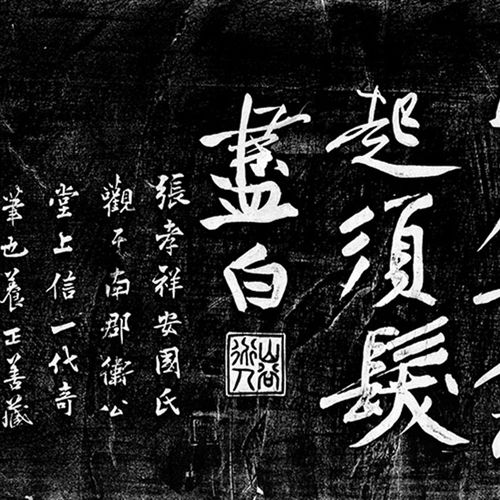 起須髮
盡白
山谷道人
張孝祥安國氏
觀于南郡衛公
堂上信一代奇
筆也養正善藏